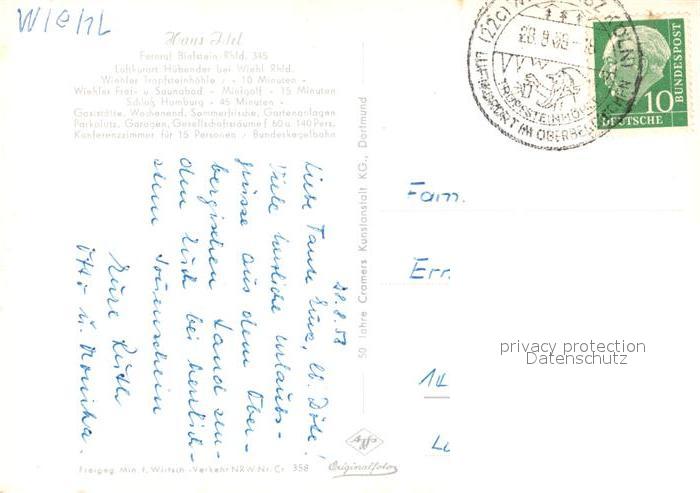 WIEHL
Haus Idel
Fernruf Bielstein-Rhld. 345
Luftkurort Hübender bei Wiehl Rhld.
Wiehler Tropfsteinhöhle - 10 Minuten -
Wiehler Frei- u. Saunabad - Minigolf - 15 Minuten
Schloß Homburg - 45 Minuten -
Gaststätte, Wochenend, Sommerfrische, Gartenanlagen
Parkplatz, Garagen, Gesellschaftsräume f. 60 u. 140 Pers.
Konferenzzimmer für 15 Personen / Bundeskegelbahn
28.8.58
Liebe Tante, lb. Döle!
Viele herzliche Urlaubs-
grüsse aus dem Ober-
bergischen Land sen-
den Euch bei herrlich-
stem Sonnenschein
Eure Ruth
Otto u. Monika.
50 Jahre Cramers Kunstanstalt KG., Dortmund
Freigeg. Min. f. Wirtsch.-Verkehr NRW Nr. Cr 358
Agfa
Originalfoto
(22c)
TROPFSTEINHÖHLE
LUFTKURORT IM OBERBERG. LAND
10
DEUTSCHE
BUNDESPOST
Fam.
Err
14
privacy protection
Datenschutz